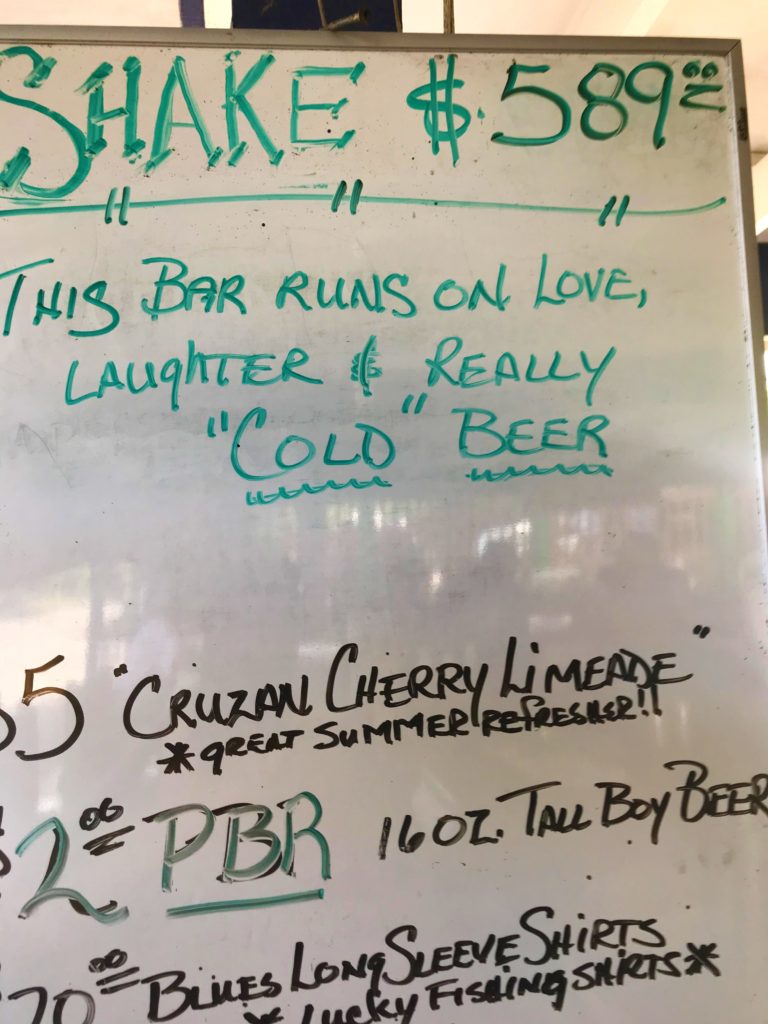 SHAKE $.589.00
THIS BAR RUNS ON LOVE,
LAUGHTER & REALLY
"COLD" BEER
$5 "CRUZAN CHERRY LIMEADE"
*GREAT SUMMER REFRESHER!!
$2.00 PBR 16 OZ. TALL BOY BEER
$20.00 BLUES LONG SLEEVE SHIRTS
*LUCKY FISHING SHIRTS*